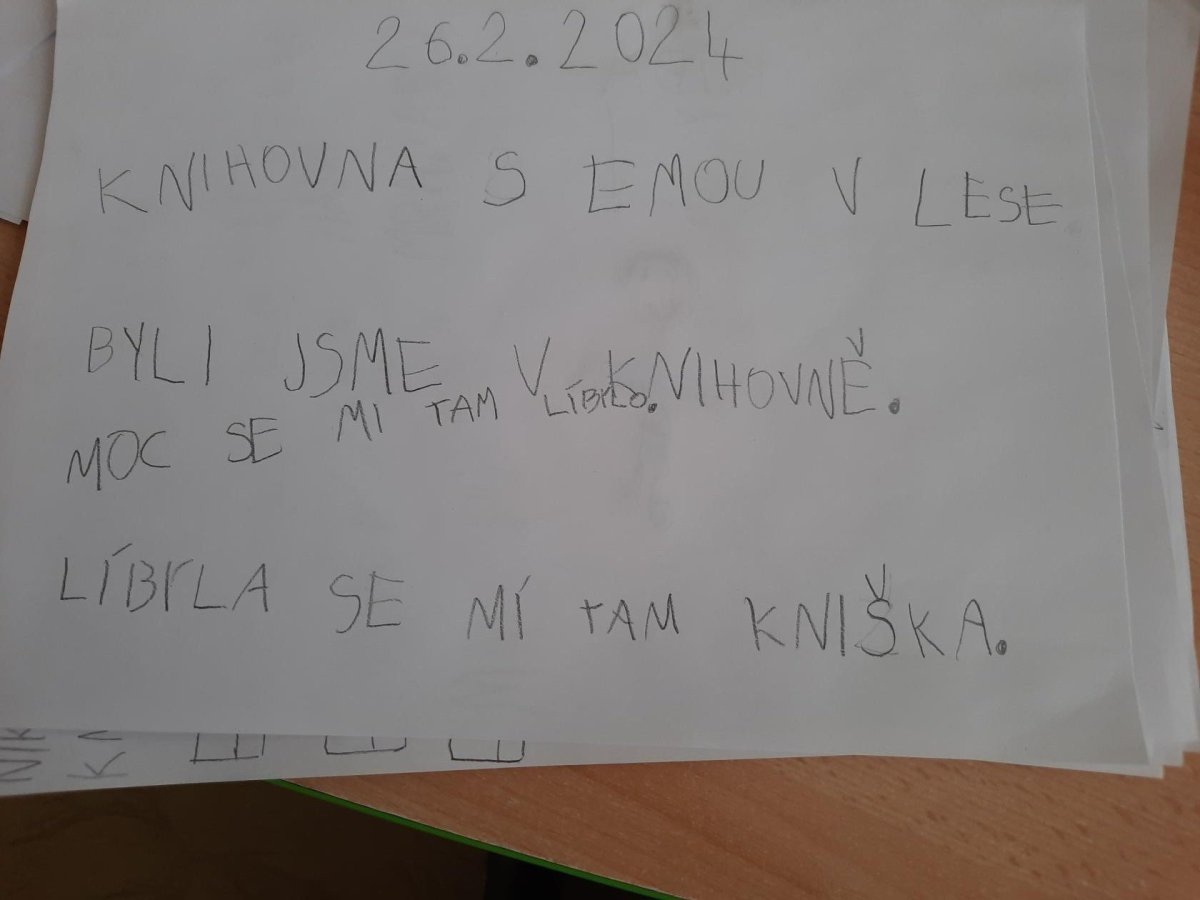 26.2.2024
KNIHOVNA S EMOU V LESE
BYLI JSME V KNIHOVNĚ.
MOC SE MI TAM LÍBYLO.
LÍBYLA SE MÍ TAM KNIŠKA.